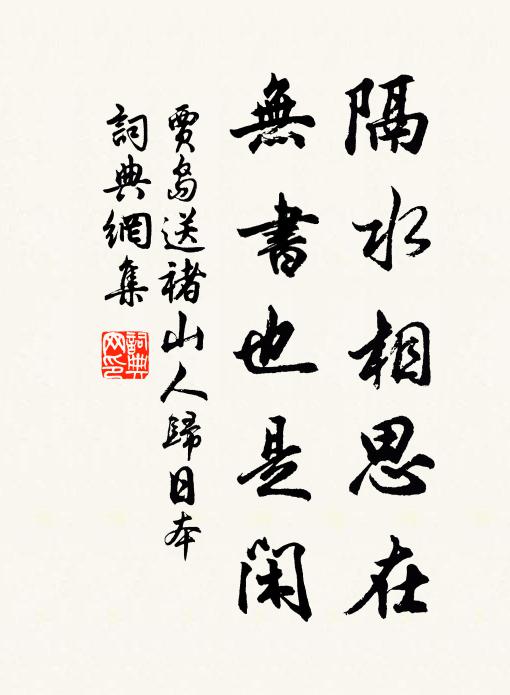 隔水相思在
無書也是閑
賈島送褚山人歸日本
詞典網集
詞典網印